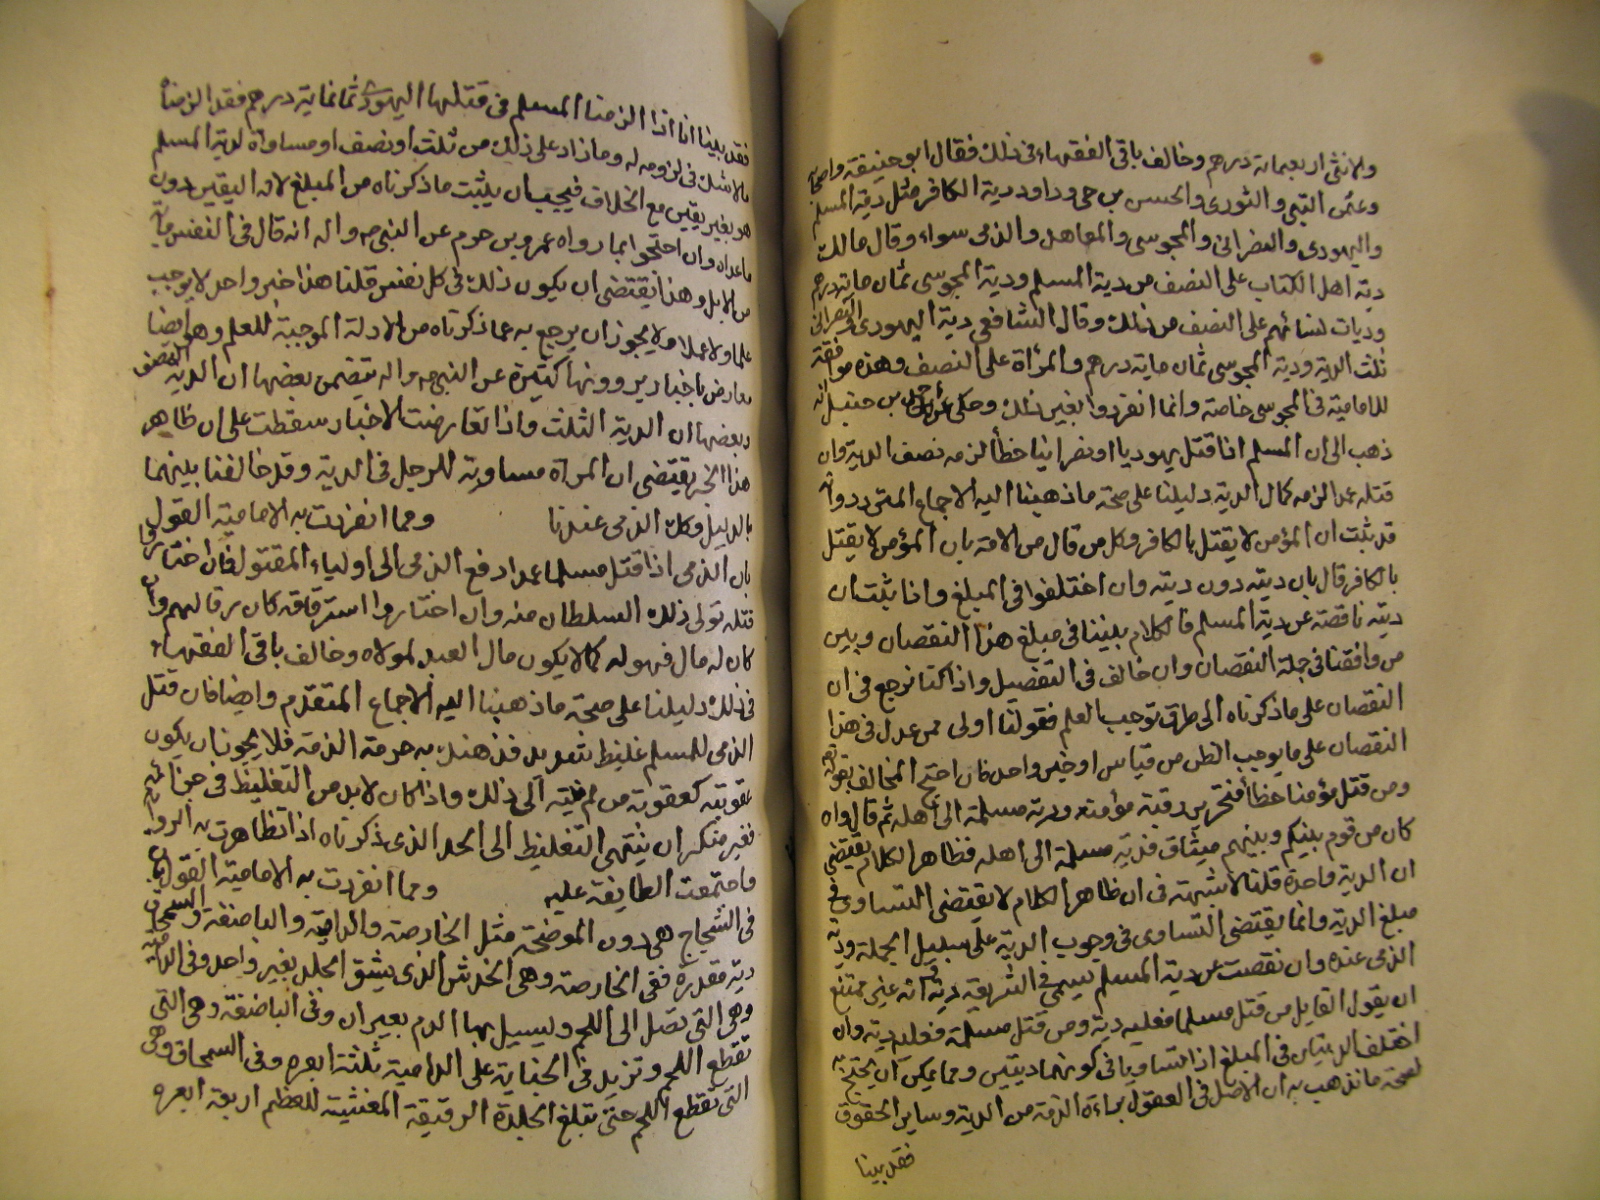 وللانثى اربعماية درهم وخالف باقي الفقهاء في ذلك فقال ابو حنيفة واصحابه
وعثمن البتي والثوري والحسن بن حي وداود دية الكافر مثل دية المسلم
واليهودي والنصراني والمجوسي والمعاهد والذمي سواء وقال مالك
دية اهل الكتاب على النصف من دية المسلم ودية المجوسي ثمان ماية درهم
وديات نسائهم على النصف من ذلك وقال الشافعي دية اليهودي والنصراني
ثلث الدية ودية المجوسي ثمان ماية درهم والمرأة على النصف وهذه موافقة
للامامية في المجوسي خاصة وانما انفردوا بغير ذلك وحكى عن احمد بن حنبل انه
ذهب الى ان المسلم اذا قتل يهوديا او نصرانيا خطأ لزمه نصف الدية وان
قتله عمدا لزمه كمال الدية دليلنا على صحة ما ذهبنا اليه الاجماع المتردد وانه
قد ثبت ان المؤمن لا يقتل بالكافر وكل من قال من الامة بان المؤمن لا يقتل
بالكافر قال بان ديته دون ديته وان اختلفوا في المبلغ واذا ثبت ان
ديته ناقصة عن دية المسلم فالكلام بيننا في مبلغ هذا النقصان وبين
من وافقنا في جملة النقصان وان خالف في التفصيل واذا كنا نرجع في ان
النقصان على ما ذكرناه الى طرق توجب العلم فقولنا اولى ممن عدل في هذا
النقصان على ما يوجب الظن من قياس او خبر واحد فان احتج المخالف بقوله تعالى
ومن قتل مؤمنا خطأ فتحرير رقبة مؤمنة ودية مسلمة الى اهله ثم قال وان
كان من قوم بينكم وبينهم ميثاق فدية مسلمة الى اهله فظاهر الكلام يقتضي
ان الدية واحدة قلنا لا شبهة في ان ظاهر الكلام لا يقتضي التساوي في
مبلغ الدية وانما يقتضي التساوي في وجوب الدية على سبيل الجملة ودية
الذمي عندنا وان نقصت عن دية المسلم تسمى في الشريعة دية الا ترى انه غير ممتنع
ان يقول القايل من قتل مسلما فعليه دية ومن قتل مسلمة فعليه دية وان
اختلف الديتان في المبلغ اذا تساويا في كونهما ديتين ومما يمكن ان يحتج به
لصحة ما نذهب به ان الاصل في العقول براءة الذمة من الدية وساير الحقوق
فقد بينا
فقد بينا انا اذا الزمنا المسلم في قتله اليهودي ثمانماية درهم فقد الزمناه
ما لا شك في لزومه له وما زاد على ذلك من ثلث او نصف او مساواة لدية المسلم
هو بغير يقين مع الخلاف فيجب ان يثبت ما ذكرناه من المبلغ لانه اليقين دون
ما عداه وان احتجوا بما رواه عمرو بن حزم عن النبي صه واله انه قال في النفس ماية
من الابل وهذا يقتضي ان يكون ذلك في كل نفس قلنا هذا خبر واحد لا يوجب
علما ولا عملا ولا يجوز ان يرجع به عما ذكرناه من الادلة الموجبة للعلم وهو ايضا
معارض باخبار يروونها كثيرة عن النبي صه واله يتضمن بعضها ان الدية النصف
وبعضها ان الدية الثلث واذا تعارضت الاخبار سقطت على ان ظاهر
هذا الخبر يقتضي ان المرأة مساوية للرجل في الدية وقد خالفنا بينهما
بالدليل وكذلك الذمي عندنا ومما انفردت به الامامية القول
بان الذمي اذا قتل مسلما عمدا دفع الذمي الى اولياء المقتول فان اختاروا
قتله تولى ذلك السلطان منه وان اختاروا استرقاقه كان رقا لهم وان
كان له مال فهو لهم كما يكون مال العبد لمولاه وخالف باقي الفقهاء
في ذلك دليلنا على صحة ما ذهبنا اليه الاجماع المتقدم وايضا فان قتل
الذمي للمسلم غليظ شديد قد هتك به حرمة الذمة فلا يجوز ان يكون
عقوبته كعقوبة من لم ينته الى ذلك واذا كان لا بد من التغليظ في جزائه
فغير منكر ان ينتهي التغليظ الى الحد الذي ذكرناه اذا تظاهرت به الرواية
واجتمعت الطايفة عليه ومما انفردت به الامامية القول بان
في الشجاج هي دون الموضحة مثل الخارصة والدامية والباضعة والسمحاق
دية مقدرة ففي الخارصة وهي الخدش الذي يشق الجلد بعير واحد وفي الدامية
وهي التي تصل الى اللحم ويسيل بها الدم بعيران وفي الباضعة وهي التي
تقطع اللحم وتزيد في الجناية على الدامية ثلثة ابعرة وفي السمحاق وهي
التي تقطع اللحم حتى تبلغ الجلدة الرقيقة المغشية للعظم اربعة ابعرة